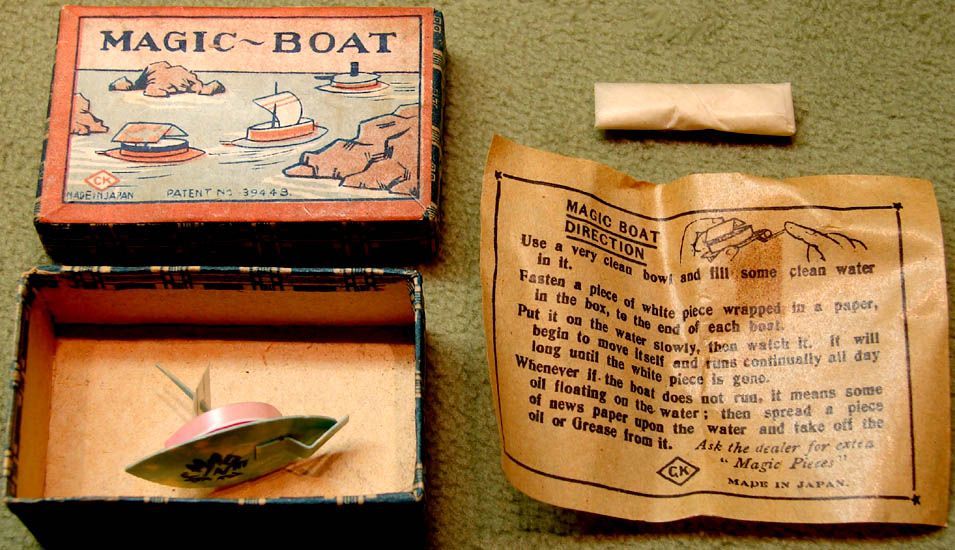 MAGIC~BOAT
C.K
MADE IN JAPAN
PATENT No 39448
MAGIC BOAT
DIRECTION
Use a very clean bowl and fill some clean water
in it.
Fasten a piece of white piece wrapped in a paper,
in the box, to the end of each boat.
Put it on the water slowly, then watch it. It will
begin to move itself and runs continually all day
long until the white piece is gone.
Whenever if the boat does not run, it means some
oil floating on the water; then spread a piece
of news paper upon the water and take off the
oil or Grease from it. Ask the dealer for extra
"Magic Pieces"
C.K
MADE IN JAPAN.